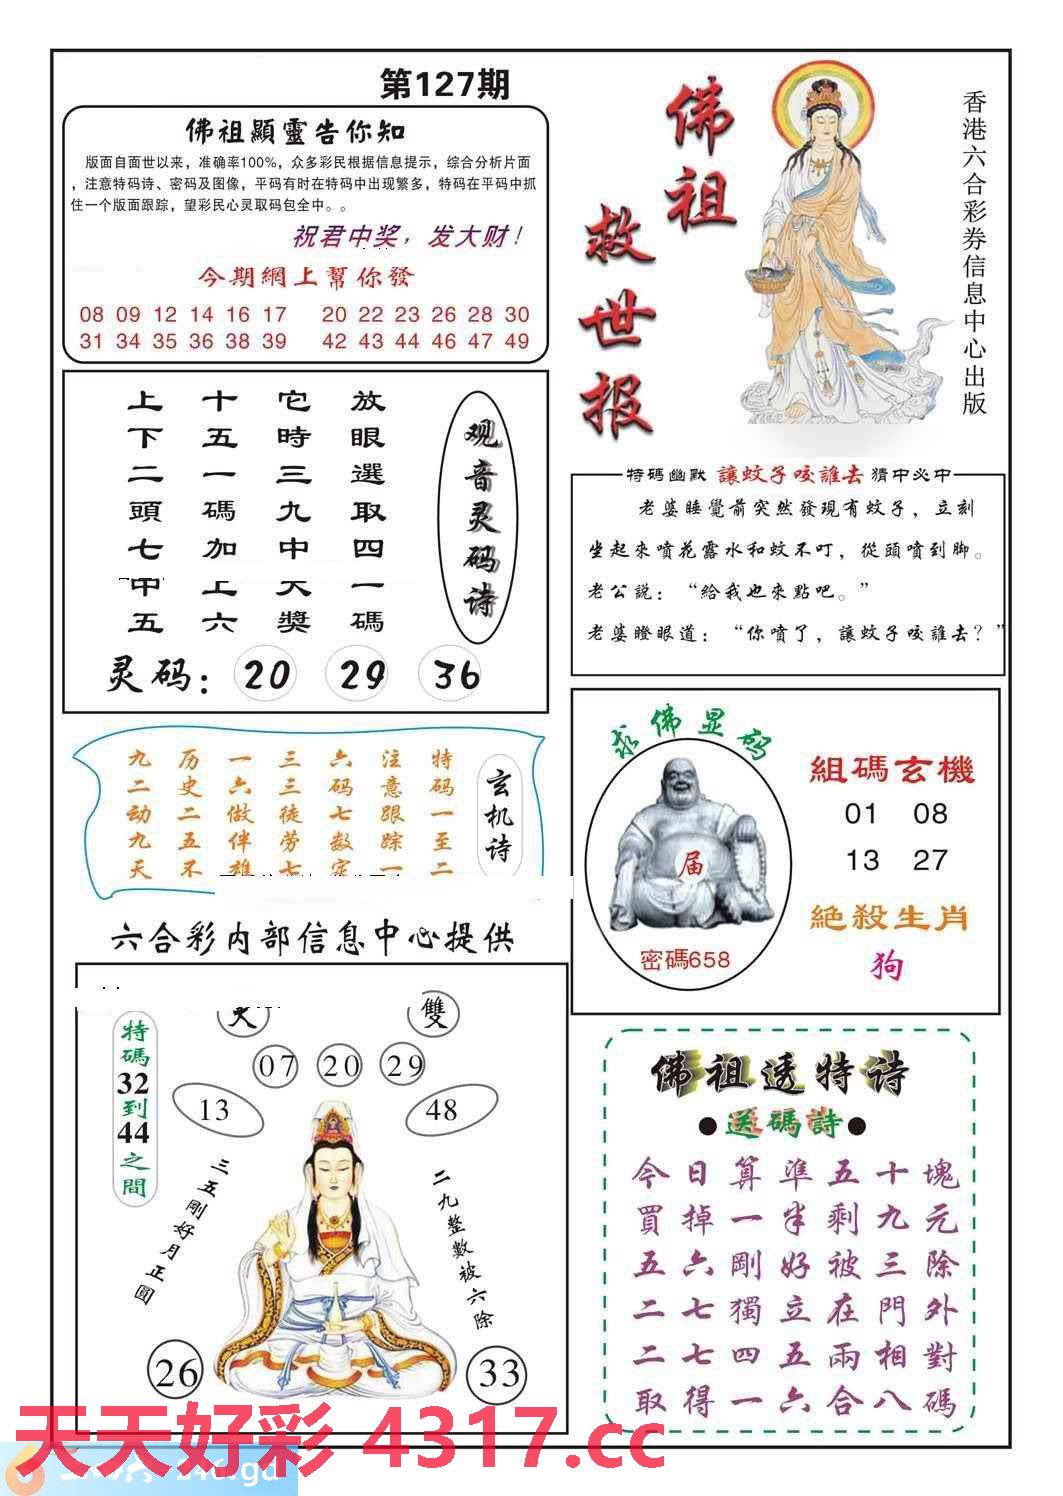 第127期
佛祖顯靈告你知
版面自面世以来，准确率100%，众多彩民根据信息提示，综合分析片面
，注意特码诗、密码及图像，平码有时在特码中出现繁多，特码在平码中抓
住一个版面跟踪，望彩民心灵取码包全中。。
祝君中奖，发大财！
今期網上幫你發
08 09 12 14 16 17 20 22 23 26 28 30
31 34 35 36 38 39 42 43 44 46 47 49
佛祖
救世报
香港六合彩券信息中心出版
观音灵码诗
放眼選取四一碼
它時三九中大獎
十五一碼加上六
上下二頭七中五
灵码：20 29 36
特碼幽默 讓蚊子咬誰去 猜中必中
老婆睡覺前突然發現有蚊子，立刻
坐起來噴花露水和蚊不叮，從頭噴到脚。
老公説：“給我也來點吧。”
老婆瞪眼道：“你噴了，讓蚊子咬誰去？”
玄机诗
特码一至二
注意跟踪一
六码七数定
三三徒劳七
一六做伴雄
历史二五不
九二动九天
求佛显码
届
密碼658
組碼玄機
01 08
13 27
絕殺生肖
狗
六合彩内部信息中心提供
特碼32到44之間
雙
07 20 29
13 48
三五剛好月正圓
二九整數被六除
26 33
佛祖透特诗
●送碼詩●
今日算準五十塊
買掉一半剩九元
五六剛好被三除
二七獨立在門外
二七四五兩相對
取得一六合八碼
天天好彩 4317.cc
246.gd